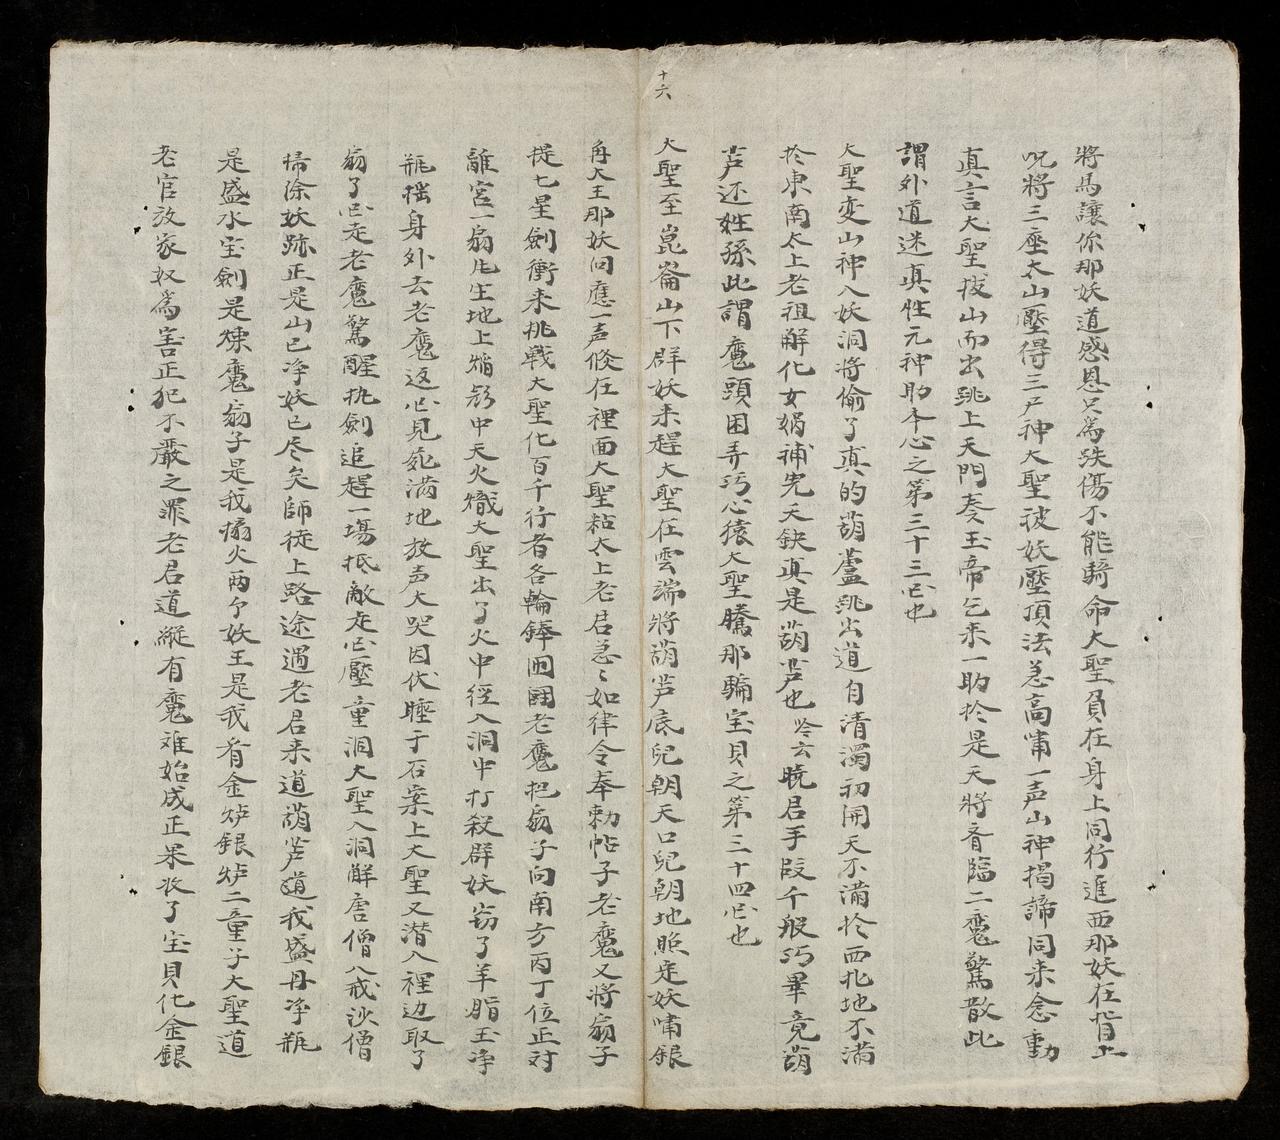 將馬讓你那妖道感恩只為跌傷不能騎命大聖負在身上同行進西那妖在背上
呪將三座太山壓得三尸神大聖被妖壓頂法忽高嘯一声山神揭諦同来念動
真言大聖拔山而出跳上天門奏玉帝乞来一助於是天將齊臨二魔驚散此
謂外道迷真性元神助本心之第三十三囬也
大聖变山神入妖洞將偷了真的葫蘆跳出道自清濁初開天不滿於西北地不滿
於東南太上老祖解化女媧補完天缺真是葫芦也 云曉君手段千般巧畢竟葫
芦还姓孫此謂魔頭困弄巧心猿大聖騰那騙宝貝之第三十四囬也
十六
大聖至崑崙山下群妖来趕大聖在雲端將葫芦底兒朝天口兒朝地照定妖嘯銀
角大王那妖回應一声倏在裡面大聖粘太上老君急〻如律令奉勅帖子老魔又將扇子
提七星劍衝来挑戰大聖化百千行者各輪鋒囬國老魔把扇子向南方丙丁位正対
離宮一扇凡生地上焇彩中天火熾大聖出了火中經入洞中打殺群妖窃了羊脂玉净
瓶搖身外去老魔返囬見死滿地放声大哭因伏睡于石案上大聖又潜入裡边取了
扇了囬走老魔驚醒执劍追趕一塲抵敵走囬壓童洞大聖入洞解唐僧八戒沙僧
掃除妖跡正是山已净妖已尽矣師徒上路途遇老君来道葫芦道我盛丹净瓶
是盛水宝劍是煉魔扇子是我煽火両个妖王是我看金炉銀炉二童子大聖道
老官放家奴爲害正犯不嚴之罪老君道縱有魔难始成正果收了宝貝化金銀